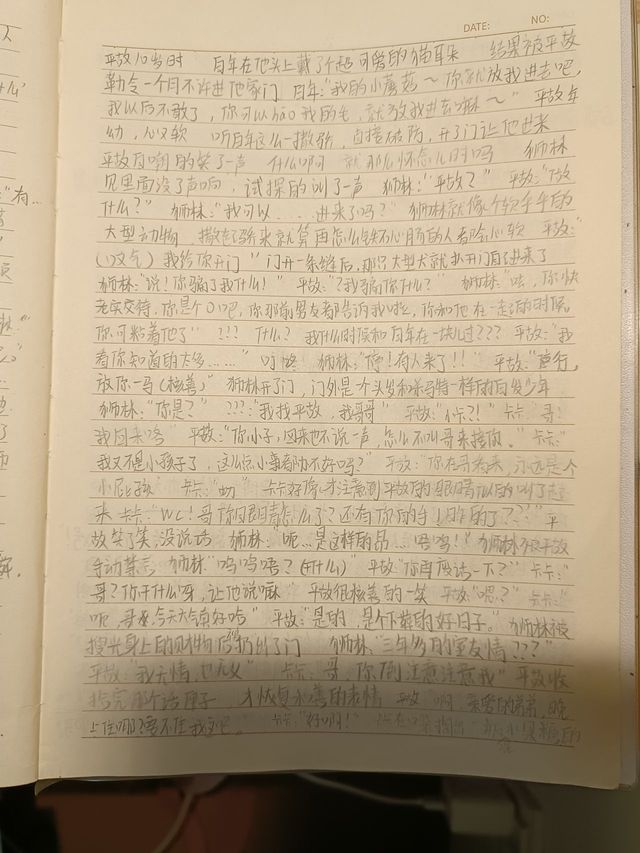 DATE: NO:
平故10岁时 百年在他头上戴了个超可爱的猫耳朵 结果被平故
勒令一个月不许进他家门 百年:"我的小蘑菇~你就放我进去吧,
我以后不敢了,你可以hao我的毛,就放我进去嘛~" 平故年
幼,心又软 听百年这么一撒娇,直接破防,开了门让他进来
平故自嘲的笑了一声 什么啊 就那么怀念儿时吗 狮林
见里面没了声响,试探的叫了一声 狮林:"平故?" 平故:"做
什么?" 狮林:"我可以....进来了吗?" 狮林就像个软乎乎的
大型动物,撒起娇来就算再怎么铁石心肠的人都会心软 平故:"
(叹气)我给你开门" 门开一条缝后,那只大型犬就扑开门自己进来了
狮林:"说!你骗了我什么!" 平故:"?我骗你什么?" 狮林:"哇,你快
老实交待,你是个0吧,你那前男友都告诉我啦,你和他在一起的时候,
你可粘着他了" ???什么?我什么时候和百年在一块儿过??? 平故:"我
看你知道的太多......" 叮咚 狮林:"停!有人来了!!" 平故:"行,
放你一马(核善)" 狮林开了门,门外是个头发和杀马特一样的白发少年
狮林:"你是?" ???:"我找平故,我哥哥" 平故:"小卡?!" 卡卡:"哥!
我回来咯" 平故:"你小子,回来也不说一声,怎么不叫哥来接你。" 卡卡:"
我又不是小孩子了,这么点小事都办不好吗?" 平故:"你在哥未来,永远是个
小屁孩 卡卡:"切" 卡卡好像才注意到平故的眼睛似的叫了起
来 卡卡:"WC!哥你眼睛怎么了?还有你的手!咋的了???" 平
故笑了笑,没说话 狮林:"呃...是这样的昂....唔唔!" 狮林被平故
手动禁言 狮林:"呜呜唔?(干什么)" 平故:"你再废话一下?" 卡卡:"
哥?你干什么呀,让他说嘛" 平故很核善的一笑 平故:"嗯?" 卡卡:"
呃,哥,今天天气真好哈" 平故:"是的,是个下葬的好日子。" 狮林被
搜光身上的财物后扔出了门 狮林:"三年多的室友情???"
平故:"我无情,也无义" 卡卡:哥,你倒注意注意我" 平故收
拾完那个话匣子,才恢复和善的表情 平故:啊,亲爱的弟弟,晚
上住哪?要不住我这吧。 卡卡:"好啊!"